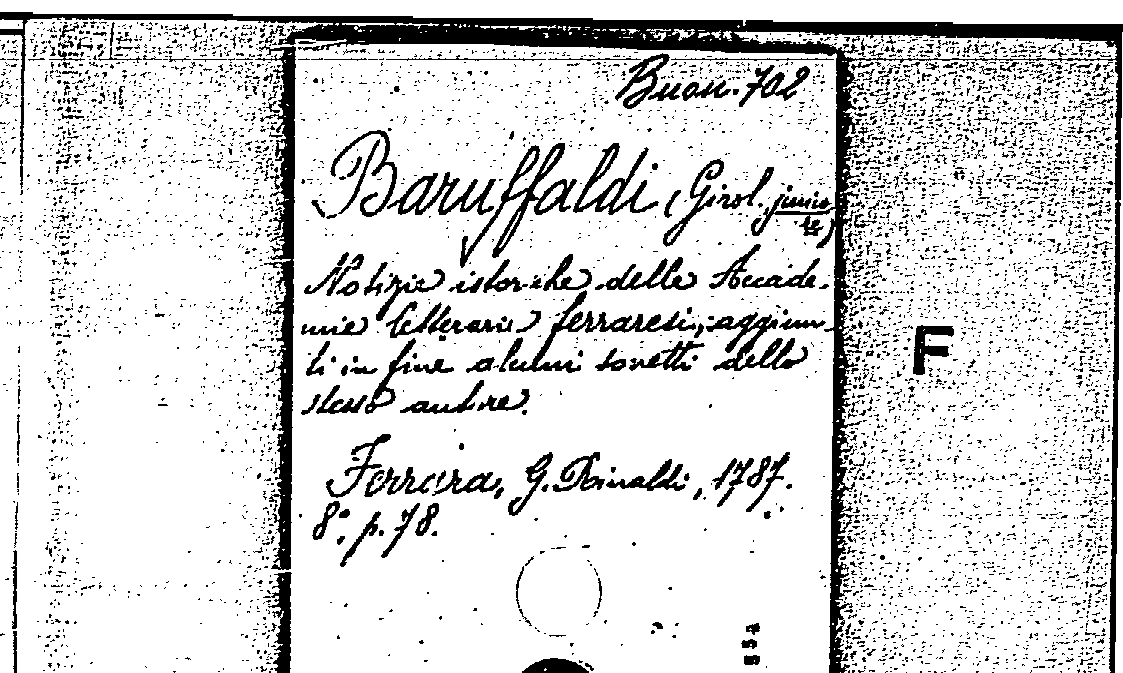 Buon. 702
Baruffaldi, (Girol. junio-
re)
Notizie istoriche delle Accade-
mie letterarie ferraresi; aggiun-
ti in fine alcuni sonetti dello
stesso autore.
F
Ferrara, G. Rinaldi, 1787.
8°, p. 78.